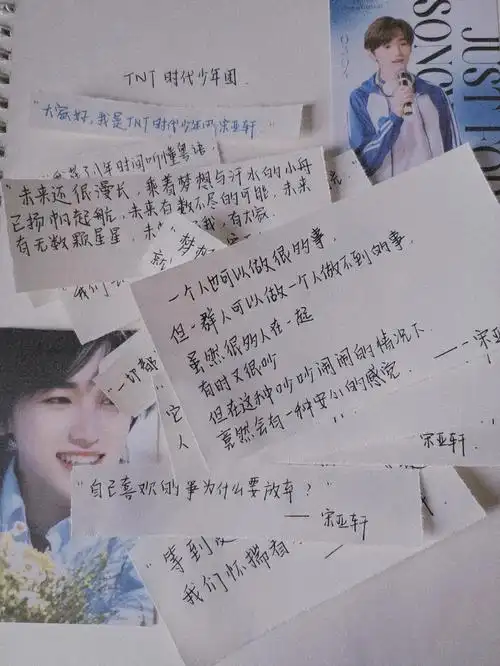 TNT时代少年团
0304
JUST FO
SONGY
"大家好,我是TNT时代少年团宋亚轩
年时间听懂粤语
"未来还很漫长,乘着梦想与汗水的小舟
已扬帆起航,未来有数不尽的可能,未来
有无数颗星星,未
我,有大家.
一个人也可以做很多的事,
但一群人可以做一个人做不到的事,
虽然很多人在一起
有时又很吵
但在这种吵吵闹闹的情况下
竟然会有一种安心的感觉.
——宋亚轩
梦想
我们
一切都
它
人
宋亚轩
"自己喜欢的事为什么要放弃?"
——宋亚轩
"等到
我们怀揣着